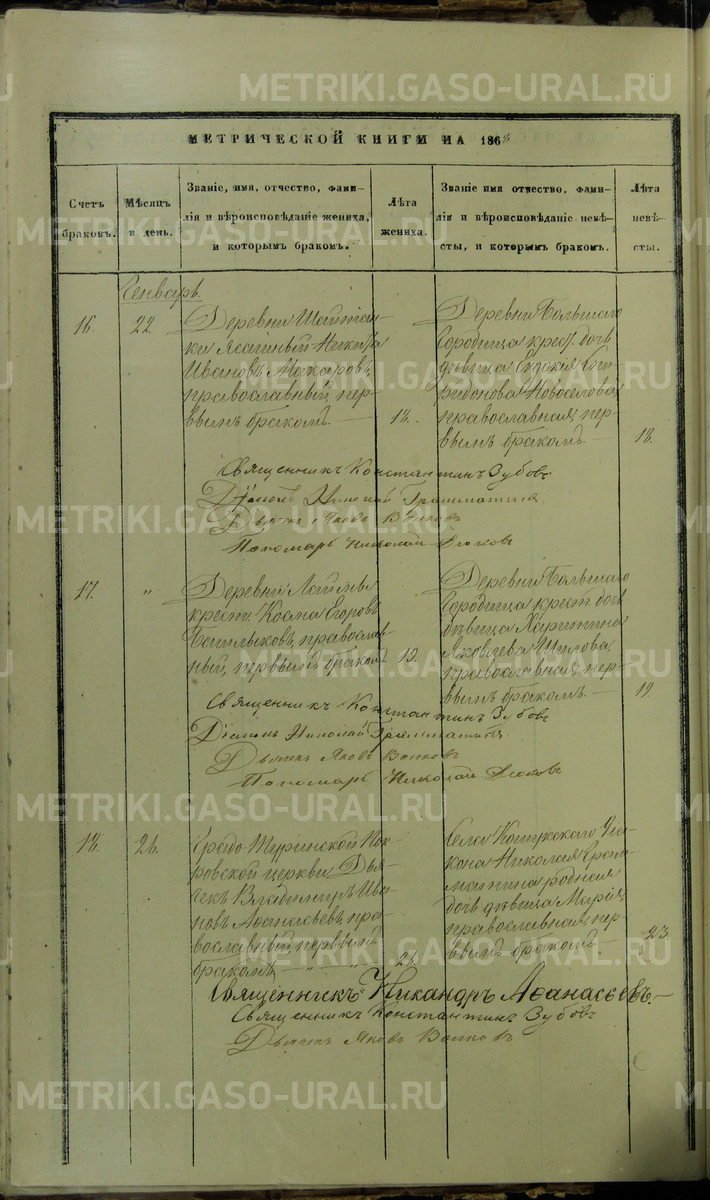 МЕТРИЧЕСКОЙ КНИГИ НА 186
Счетъ
браковъ.
Мѣсяцъ
и день.
Званіе, имя, отчество, фами-
лія и вѣроисповѣданіе жениха,
и которымъ бракомъ.
Лѣта
жениха.
Званіе имя отчество, фами-
лія и вѣроисповѣданіе невѣ-
сты, и которымъ бракомъ.
Лѣта
невѣ-
сты.
Генварь
16.
22.
Деревни Шайтан-
ки Никита
Ивановъ Макаровъ,
православный, пер-
вымъ бракомъ.
18.
Деревни Большаго
Городища крест. дочь
дѣвица Спи-
ридонова Новоселова,
православная, пер-
вымъ бракомъ.
18.
Священникъ Константинъ Зубовъ
Діаконъ Николай Грамматинъ
Дьячекъ Яковъ
Пономарь Николай Дюковъ
17.
"
Деревни
крест. Косма Егоровъ
православ-
ный, первымъ бракомъ
19.
Деревни Большаго
Городища крест. дочь
дѣвица Харитина
Яковлева Шилова,
православная, пер-
вымъ бракомъ.
19
Священникъ Константинъ Зубовъ
Діаконъ Николай Грамматинъ
Дьячекъ Яковъ
Пономарь Николай Дюковъ
18.
Градо Туринской Пок-
ровской церкви Дья-
чекъ Владимиръ Ива-
новъ Аѳанасьевъ, пра-
вославный, первымъ
бракомъ
Села Діа-
кона Николая Грам-
матина родная
дочь дѣвица Марія,
православная, пер-
вымъ бракомъ.
23.
Священникъ Никандръ Аѳанасьевъ.
Священникъ Константинъ Зубовъ
Дьячекъ Яковъ
METRIKI.GASO-URAL.RU